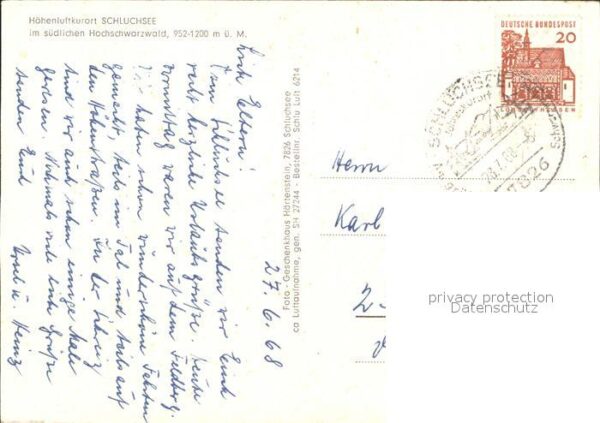 Höhenluftkurort SCHLUCHSEE
im südlichen Hochschwarzwald, 952-1200 m ü. M.
27.6.68
Lieb Eltern!
Vom Schluchsee senden wir Euch
recht herzliche Urlaubsgrüße. Heute
vormittag waren wir auf dem Feldberg.
Wir haben schon wunderschöne Fahrten
gemacht, teils im Tal und teils auf
den Höhenstraßen. In der Schweiz
sind wir auch schon einige Male
gewesen. Nochmals viele liebe Grüße
senden Euch
Ursel u. Heinz
Foto - Geschenkhaus Hörtenstein, 7826 Schluchsee
ca Luftaufnahme, gen. SH 27244 - Bestellnr. Schlu Luft 6214
DEUTSCHE BUNDESPOST
20
SCHLUCHSEE
7826
Herrn
Karl
privacy protection
Datenschutz